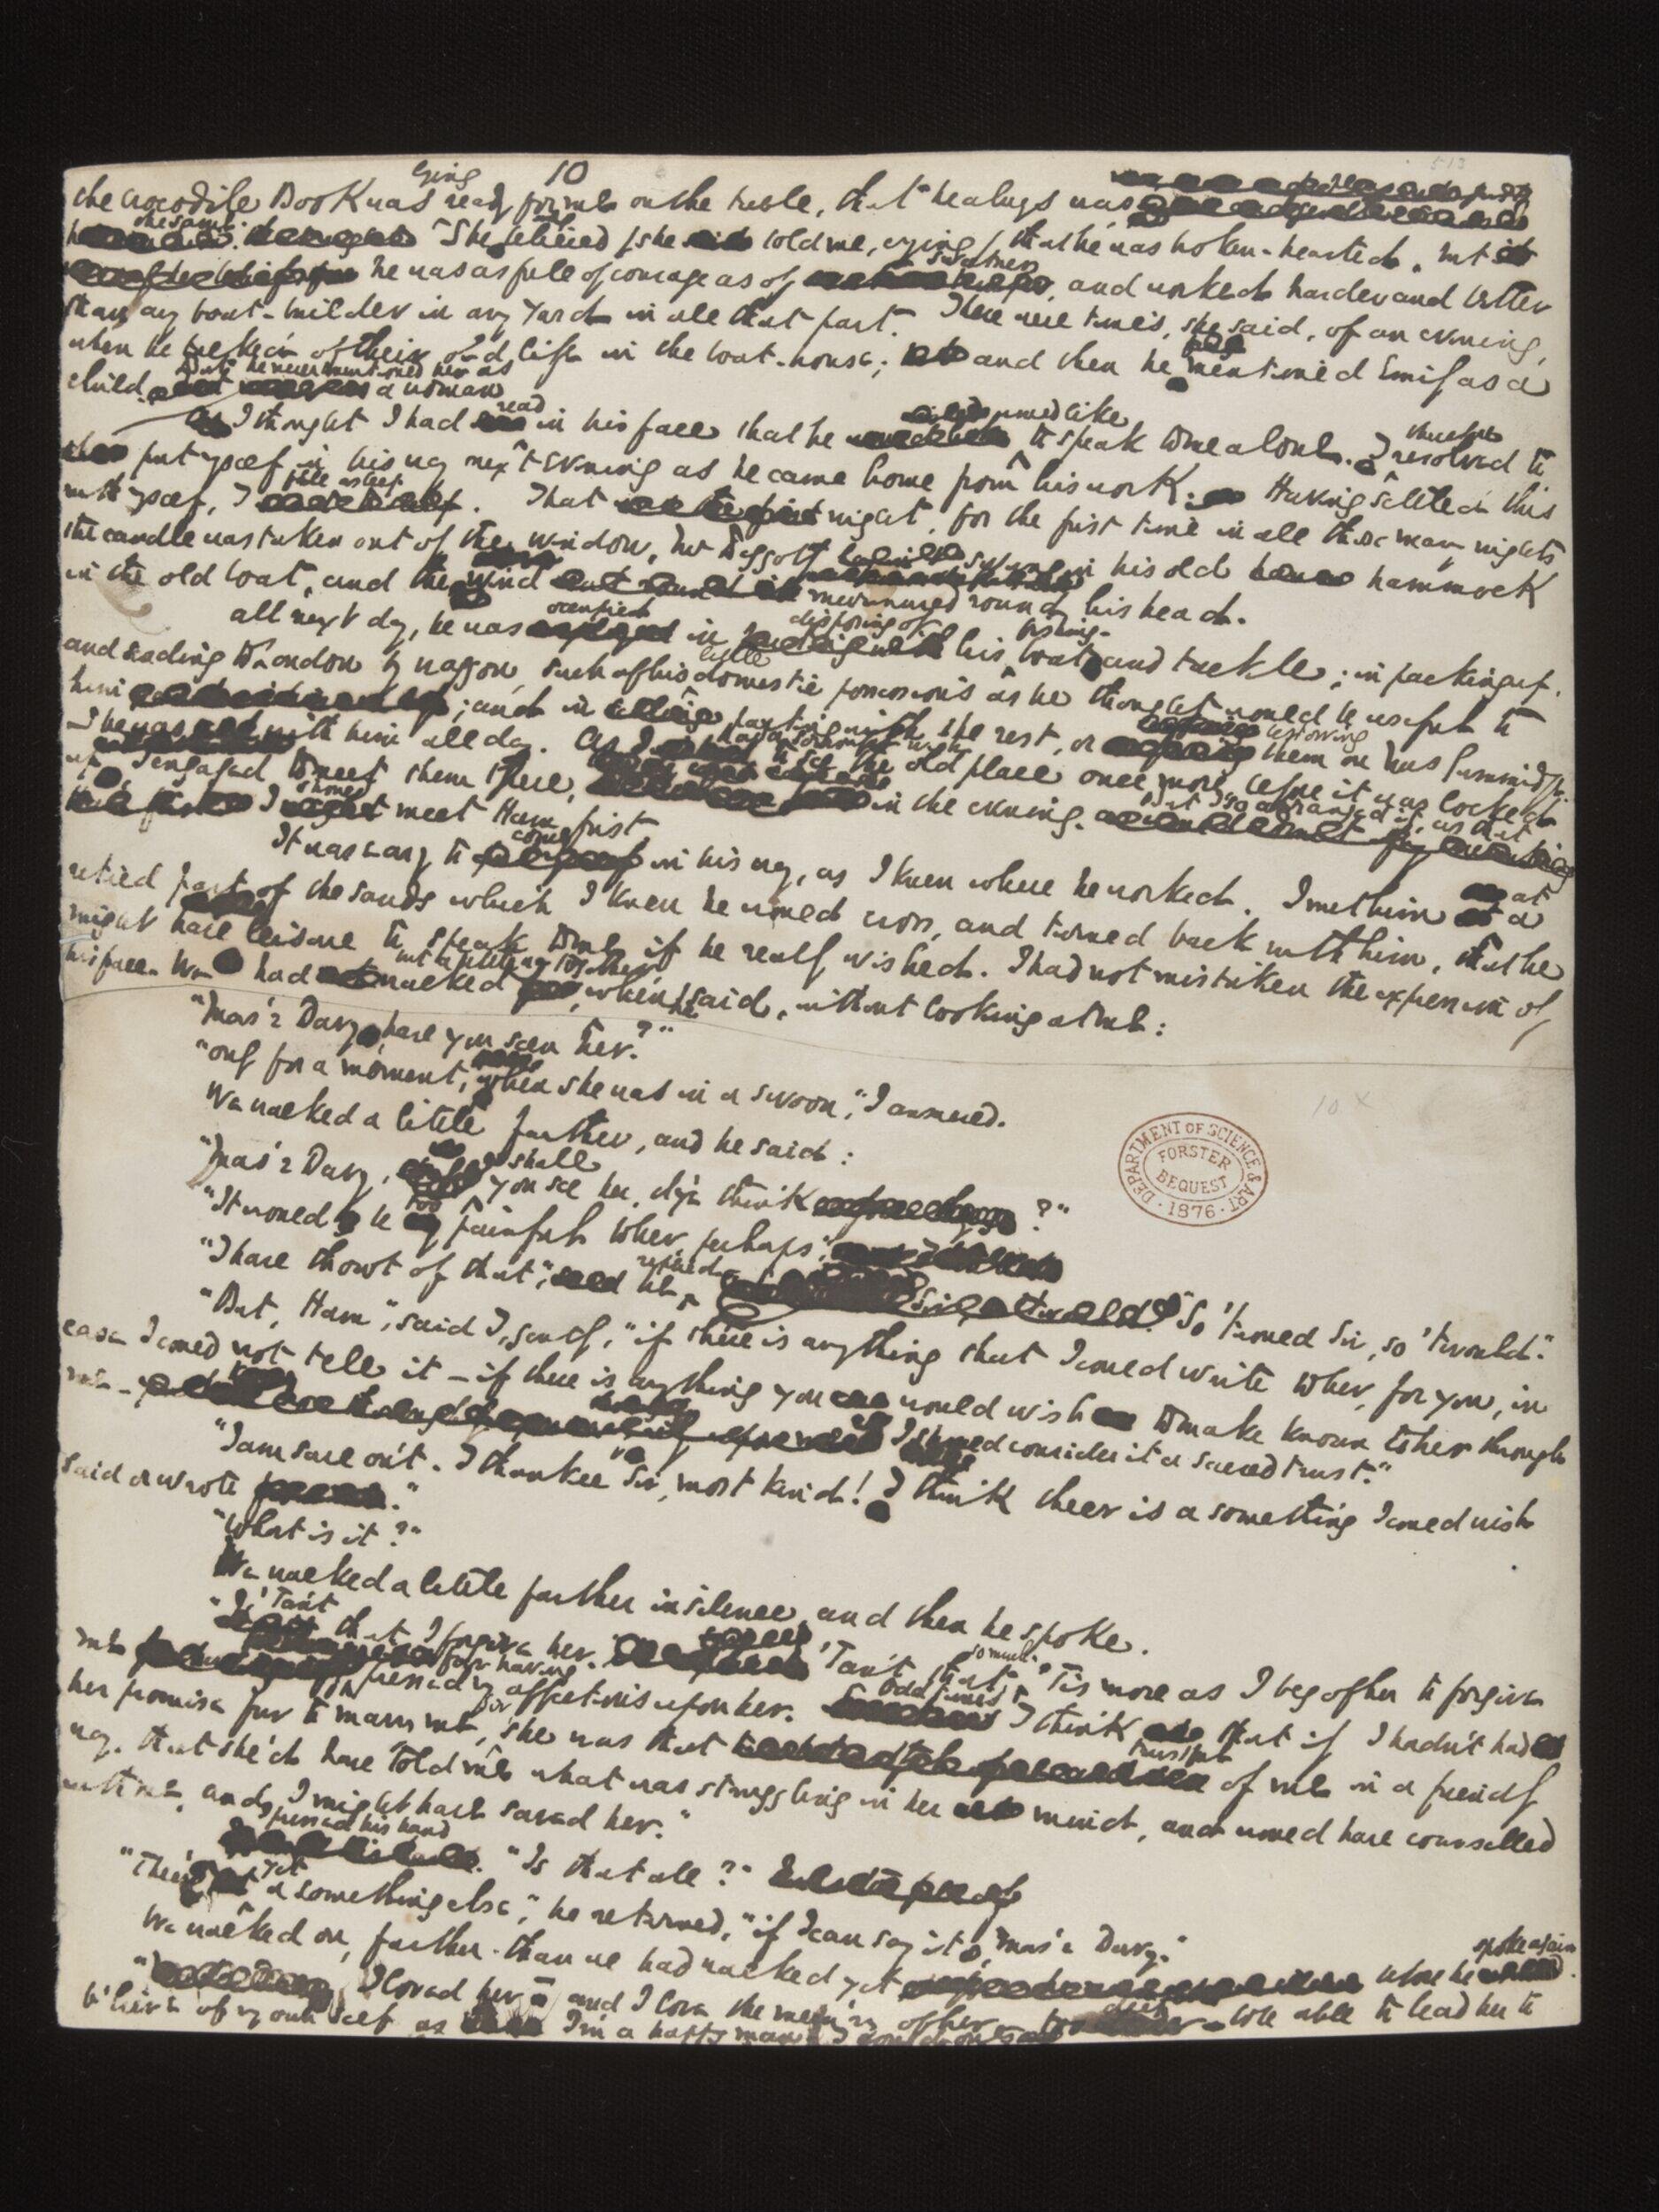 lying 10
the Crocodile Book was ready for me on the table, that he always was
the same. She believed (she told me, crying) that he was broken-hearted, but
he was as full of courage as of sweetness, and worked harder and better
than any boat-builder in any yard in all that part. There were times, she said, of an evening,
when he talked of their old life in the boat-house; and then he mentioned Emily as a
child. But he never mentioned her as a woman
I thought I had read in his face that he would like to speak to me alone. I therefore resolved to
put myself in his way next evening as he came home from his work. Having settled this
with myself, I fell asleep. That night, for the first time in all those many nights,
the candle was taken out of the window, Mr Peggotty swung in his old hammock
in the old boat, and the wind murmured round his head.
All next day, he was occupied in disposing of his fishing-boat and tackle; in packing up,
and sending to London by waggon, such of his little domestic possessions as he thought would be useful to
him; and in parting with the rest, or bestowing them on Mrs Gummidge.
She was with him all day. As I had a sorrowful wish to see the old place once more, before it was locked
up, I engaged to meet them there in the evening. But I so arranged it, as that
I should meet Ham first
It was easy to come in his way, as I knew where he worked. I met him at a
retired part of the sands which I knew he would cross, and turned back with him, that he
might have leisure to speak to me if he really wished. I had not mistaken the expression of
his face. We had walked but a little way together, when he said, without looking at me:
"Mas'r Davy, have you seen her?"
"Only for a moment, when she was in a swoon," I answered.
We walked a little farther, and he said:
"Mas'r Davy, shall you see her, d'ye think ?"
"It would be too painful to her, perhaps."
"I have thowt of that," replied he, "So 'twould Sir, so 'twould."
"But, Ham," said I, gently, "if there is anything that I could write to her, for you, in
case I could not tell it – if there is anything you would wish to make known to her through
me – I should consider it a sacred trust."
"I am sure on't. I thankee Sir, most kind! I think theer is a something I could wish
said or wrote."
"What is it?"
We walked a little farther in silence, and then he spoke.
"'Tan't that I forgive her. 'Tan't that so much. 'Tis more as I beg of her to forgive
me for having pressed my affections upon her. Odd times, I think that if I hadn't had
her promise fur to marry me, Sir she was that trustful of me in a friendly
way, that she'd have told me what was struggling in her mind, and would have counselled
with me, and I might have saved her."
I pressed his hand. "Is that all?"
"Theer's yet a something else," he returned, "if I can say it, Mas'r Davy."
We walked on, farther than we had walked yet before he spoke again.
"I loved her – and I love the mem'ry of her – too deep – to be able to lead her to
b'lieve of my own self as I'm a happy man.
DEPARTMENT OF SCIENCE & ART
FORSTER
BEQUEST
1876